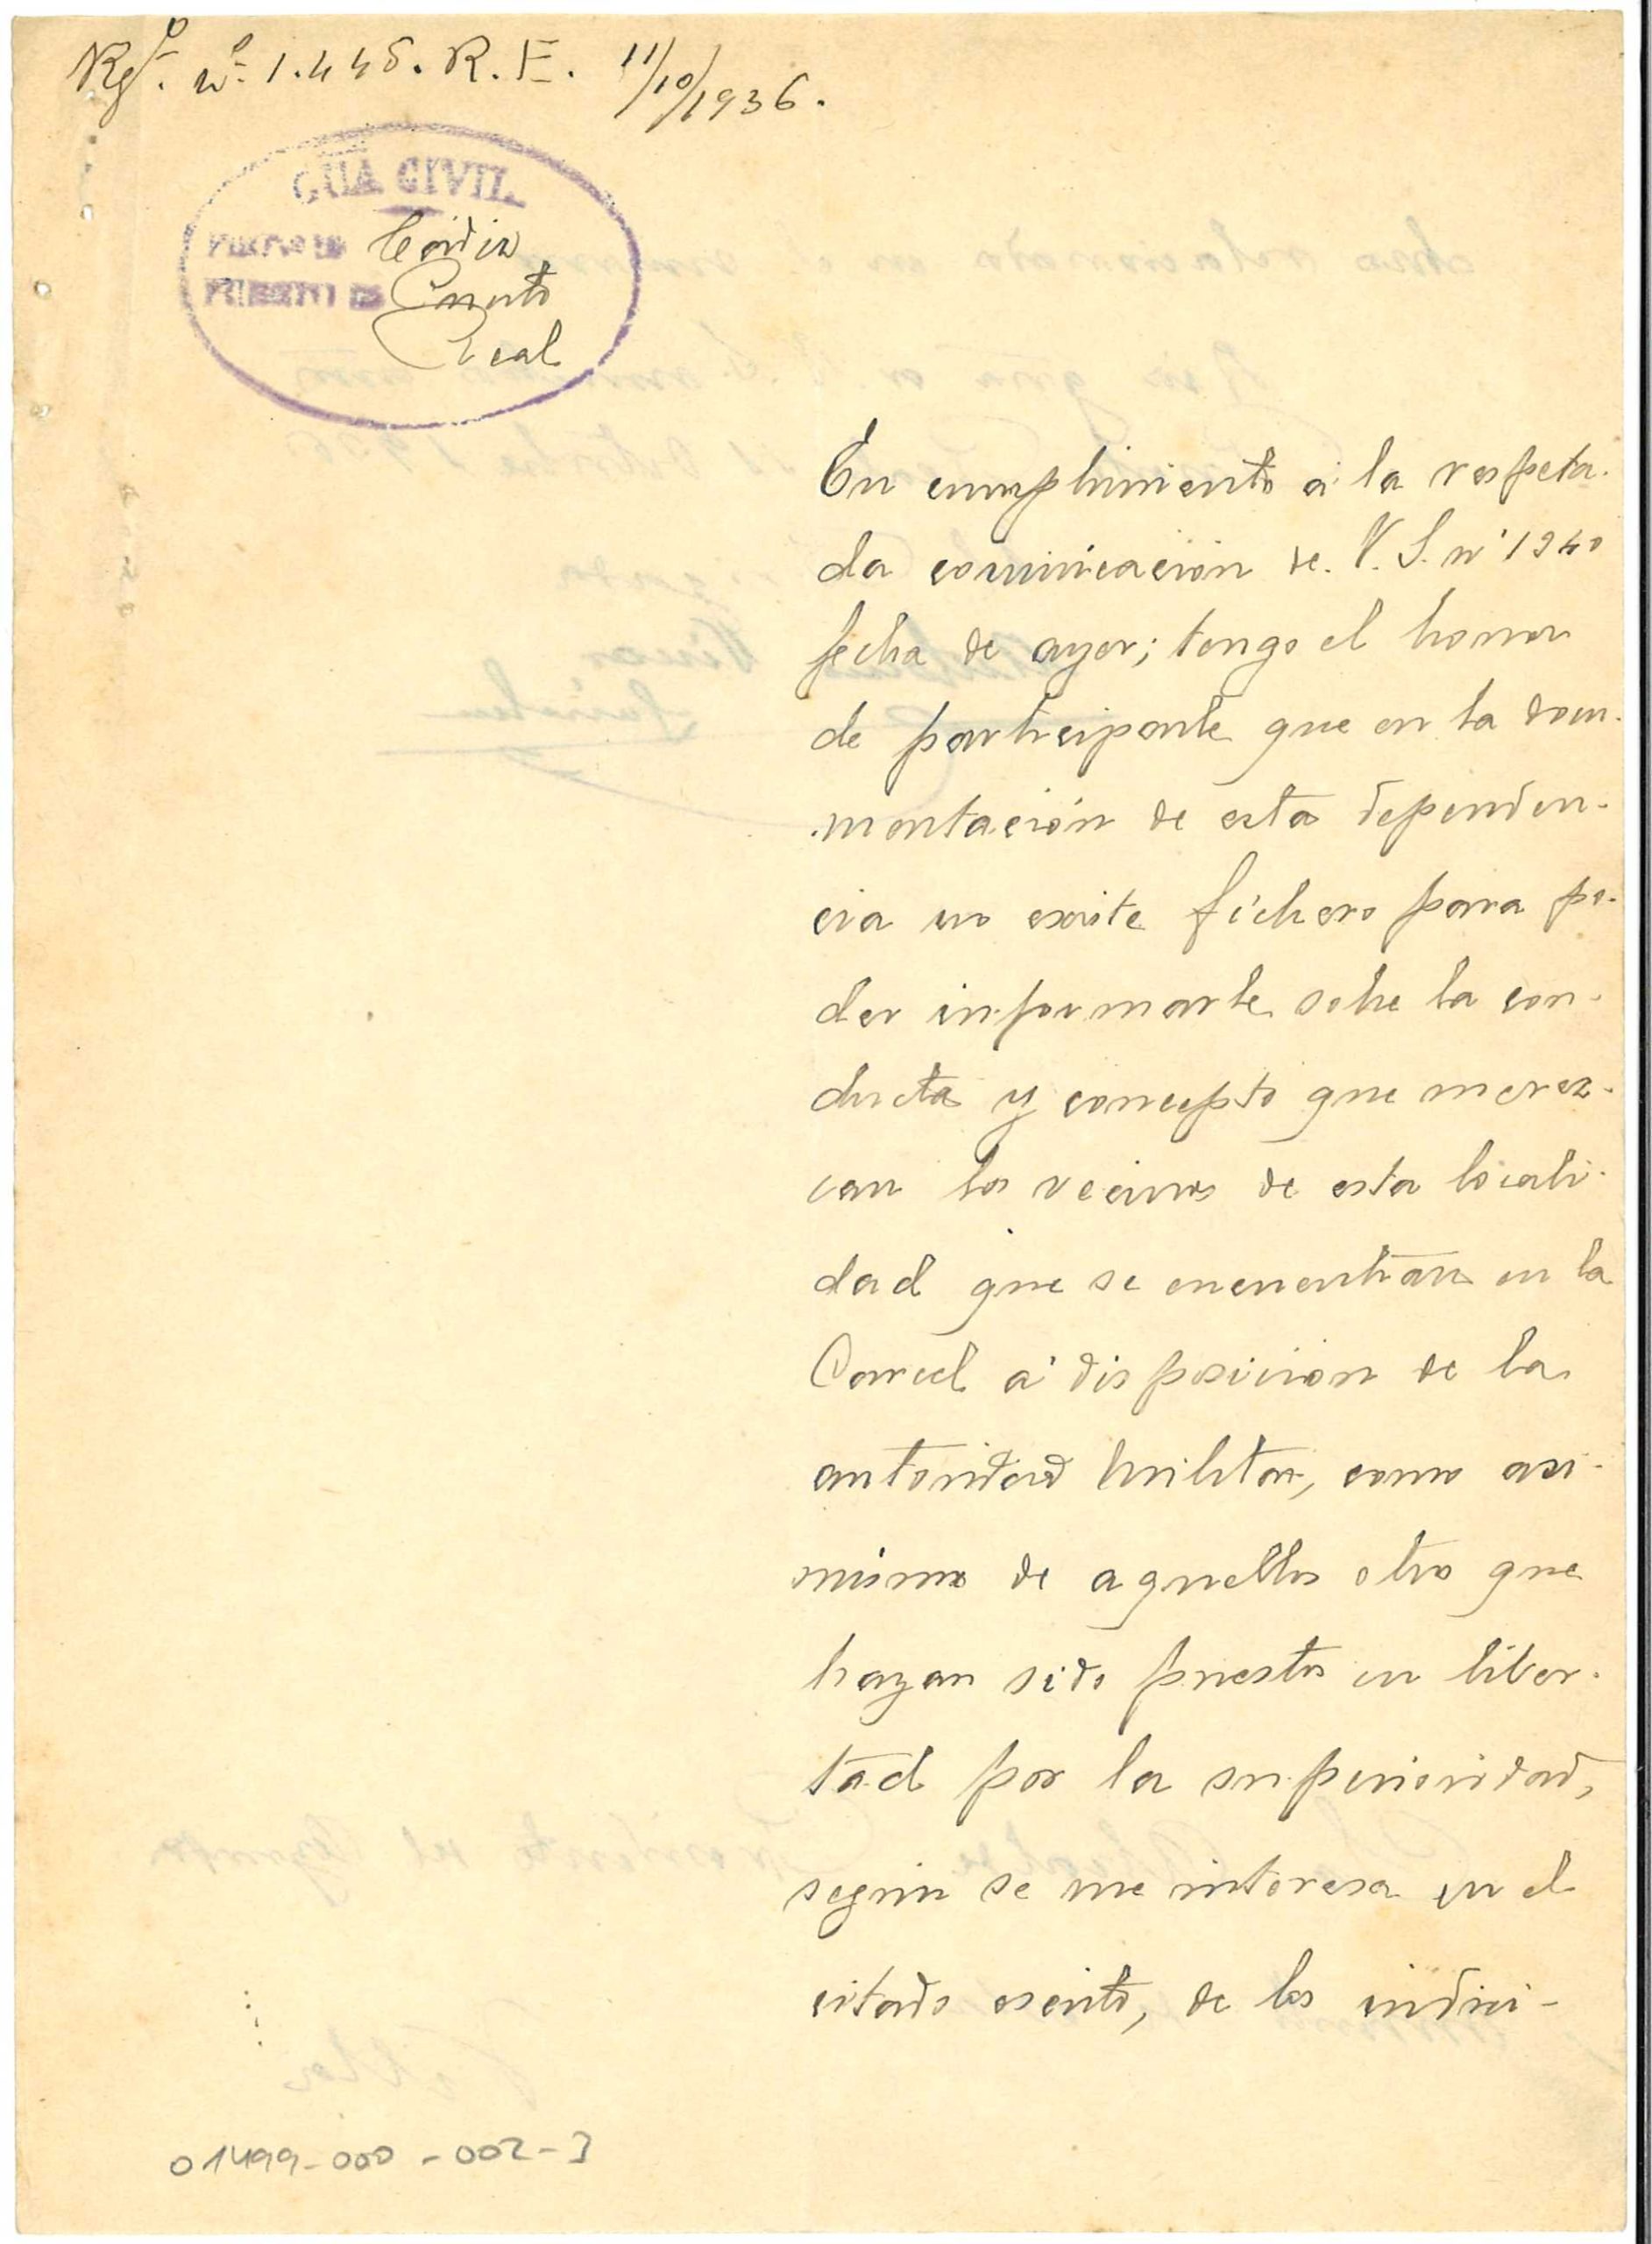 Rgº. nº. 1.445. R.E. 11/10/1936.
GUA CIVIL
Cádiz
PUESTO DE Puerto
Real
En cumplimiento á la respeta-
da comunicación de V. S. nº 1240
fecha de ayer; tengo el honor
de participarle que en la docu-
mentación de esta dependen-
cia no existe fichero para po-
der informarle sobre la con-
ducta y concepto que merez-
can los vecinos de esta locali-
dad que se encuentran en la
Carcel á disposicion de la
autoridad Militar, como asi-
mismo de aquellos otro que
hayan sido puestos en liber-
tad por la superioridad,
segun se me interesa en el
citado escrito, de los indivi-
01499-000-002-3